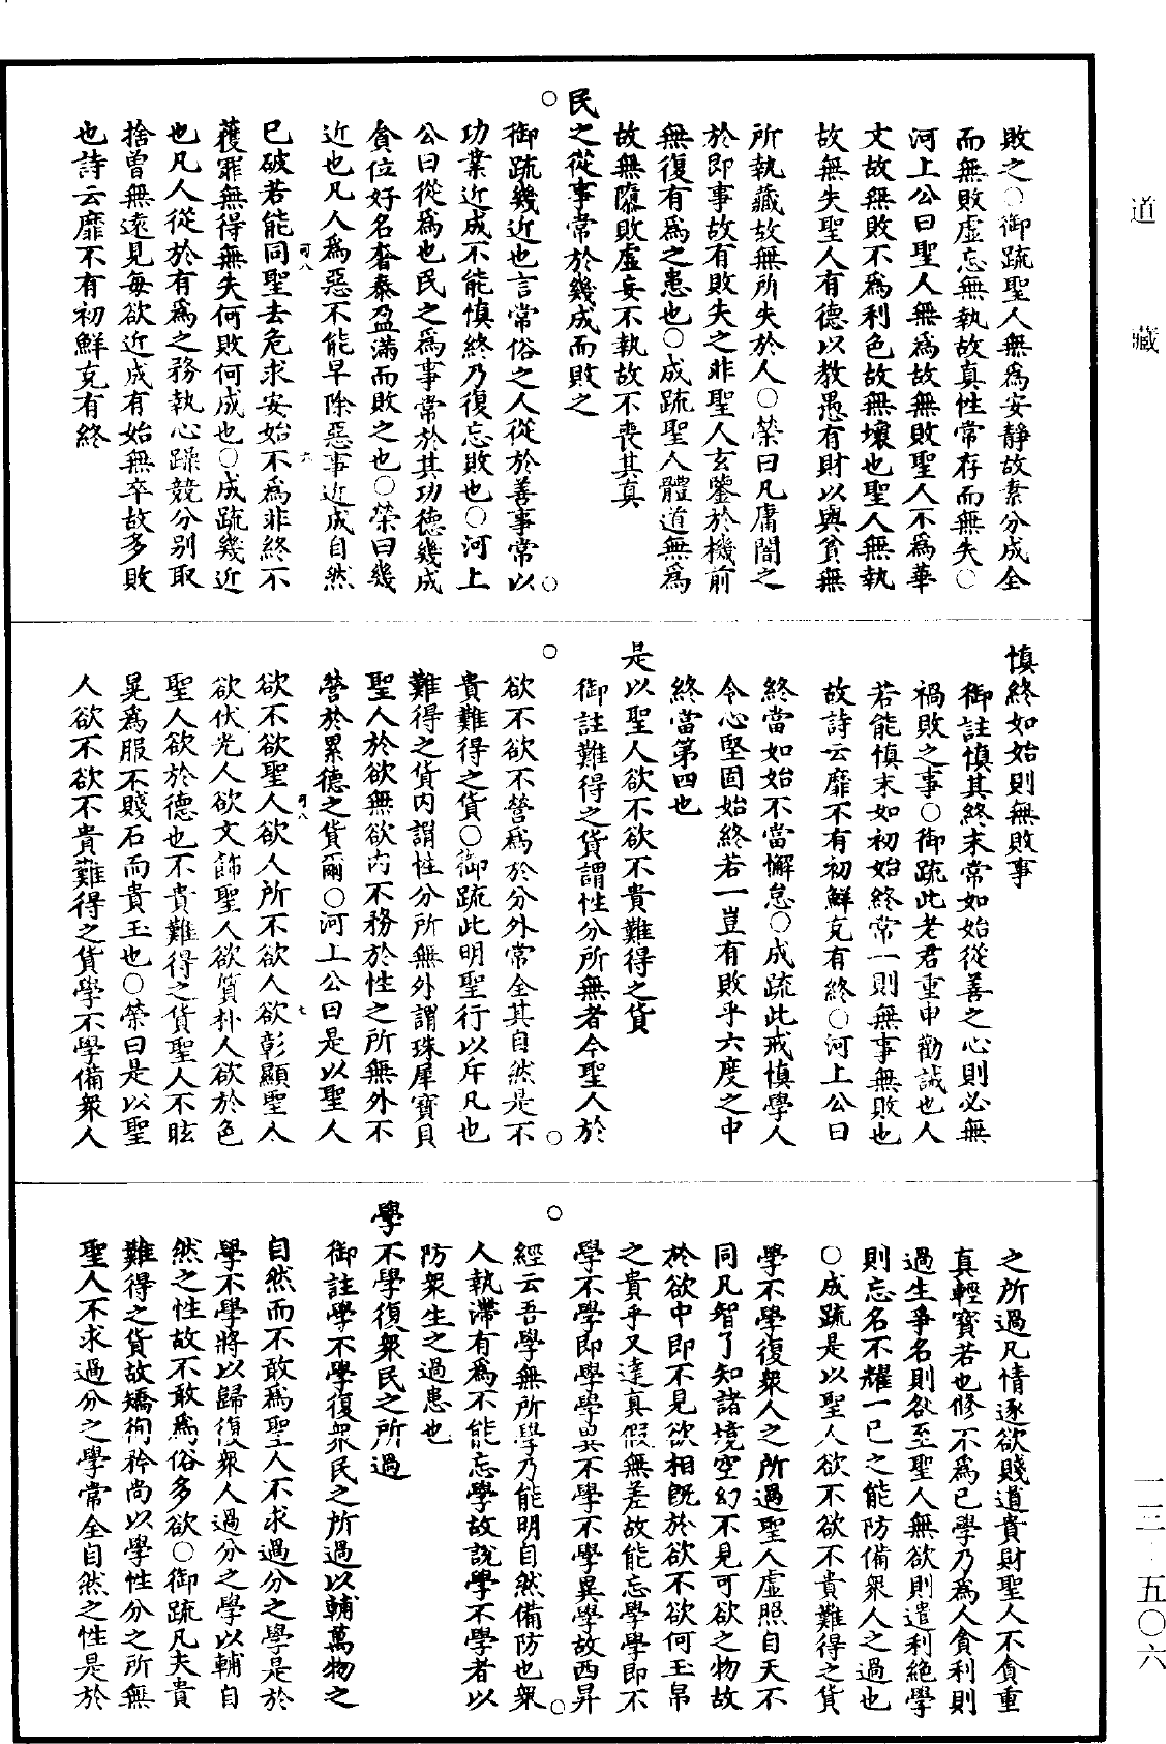 道藏
敗之○御疏聖人無為安靜故素分成全
而無敗虛忘無執故真性常存而無失○
河上公曰聖人無為故無敗聖人不為華
文故無敗不為利色故無壞也聖人無執
故無失聖人有德以教愚有財以與貧無
所執藏故無所失於人○榮曰凡庸闇之
於即事故有敗失之非聖人玄鑒於機前
無復有為之患也○成疏聖人體道無為
故無隳敗虛妄不執故不喪其真
民之從事常於幾成而敗之
御疏幾近也言常俗之人從於善事常以
功業近成不能慎終乃復忘敗也○河上
公曰從為也民之為事常於其功德幾成
貪位好名奢泰盈滿而敗之也○榮曰幾
近也凡人為惡不能早除惡事近成自然
可八 六
已破若能同聖去危求安始不為非終不
獲罪無得無失何敗何成也○成疏幾近
也凡人從於有為之務執心躁競分別取
捨曾無遠見每欲近成有始無卒故多敗
也詩云靡不有初鮮克有終
慎終如始則無敗事
御註慎其終末常如始從善之心則必無
禍敗之事○御疏此老君重申勸誡也人
若能慎末如初始終常一則無事無敗也
故詩云靡不有初鮮克有終○河上公曰
終當如始不當懈怠○成疏此戒慎學人
令心堅固始終若一豈有敗乎六度之中
終當第四也
是以聖人欲不欲不貴難得之貨
御註難得之貨謂性分所無者今聖人於
欲不欲不營為於分外常全其自然是不
貴難得之貨○御疏此明聖行以斥凡也
難得之貨內謂性分所無外謂珠犀寶貝
聖人於欲無欲內不務於性之所無外不
營於累德之貨爾○河上公曰是以聖人
可八 七
欲不欲聖人欲人所不欲人欲彰顯聖人
欲伏光人欲文飾聖人欲質朴人欲於色
聖人欲於德也不貴難得之貨聖人不眩
晃為服不賤石而貴玉也○榮曰是以聖
人欲不欲不貴難得之貨學不學備衆人
之所過凡情逐欲賤道貴財聖人不貪重
真輕寶若也修不為己學乃為人貪利則
過生爭名則欲至聖人無欲則遣利絕學
則忘名不耀一己之能防備衆人之過也
○成疏是以聖人欲不欲不貴難得之貨
學不學復衆人之所過聖人虛照自天不
同凡智了知諸境空幻不見可欲之物故
於欲中即不見欲相旣於欲不欲何玉帛
之貴乎又達真假無差故能忘學學即不
學不學即學學異不學不學異學故西昇
經云吾學無所學乃能明自然備防也衆
人執滯有為不能忘學故說學不學者以
防衆生之過患也
學不學復衆民之所過
御註學不學復衆民之所過以輔萬物之
自然而不敢為聖人不求過分之學是於
學不學將以歸復衆人過分之學以輔自
然之性故不敢為俗多欲○御疏凡夫貴
難得之貨故矯徇矜尚以學性分之所無
聖人不求過分之學常全自然之性是於
一三·五〇六